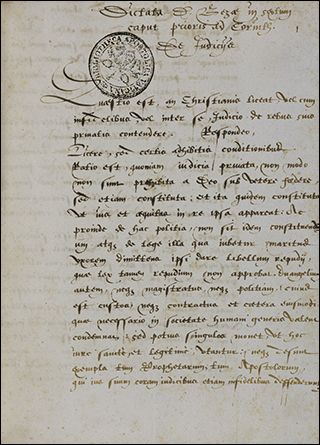 Dictata D. Bezæ in sextum
caput prioris ad Corinth.
De Judiciis
BIBLIOTHECA APOSTOLICA VATICANA
Quæstio est, an Christianis liceat vel cum
infidelibus, vel inter se, Judicio de rebus suis
privatis contendere. Respondeo,
Licere, sed certis adhibitis conditionibus.
Ratio est, quoniam judicia privata, non modo
non sunt prohibita a Deo sub vetere fœdere
sed etiam constituta: et ita quidem constituta
ut jus et æquitas in re ipsa appareat. Ac
proinde de hac politia, non sit idem constituendum
atq; de lege illa qua jubetur maritus
uxorem dimittens ipsi dare libellum repudij,
quæ lex tamen repudium non approbat. Evangelium
autem, neq; magistratus, neq; politiam, cuius
est custos, neq; contractus et cætera eiusmodi
quæ necessario in societate humani generis valent
condemnat, sed potius singulos monet ut hoc
jure sancte et legitime utantur: neq; desunt
exempla tum Prophetarum, tum Apostolorum
qui jus suum coram judicibus etiam infidelibus defenderunt